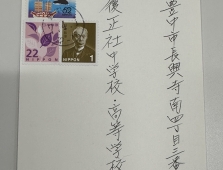 豊中市長興寺南四丁目三番
履正社中学校・高等学校
22
NIPPON
1
NIPPON